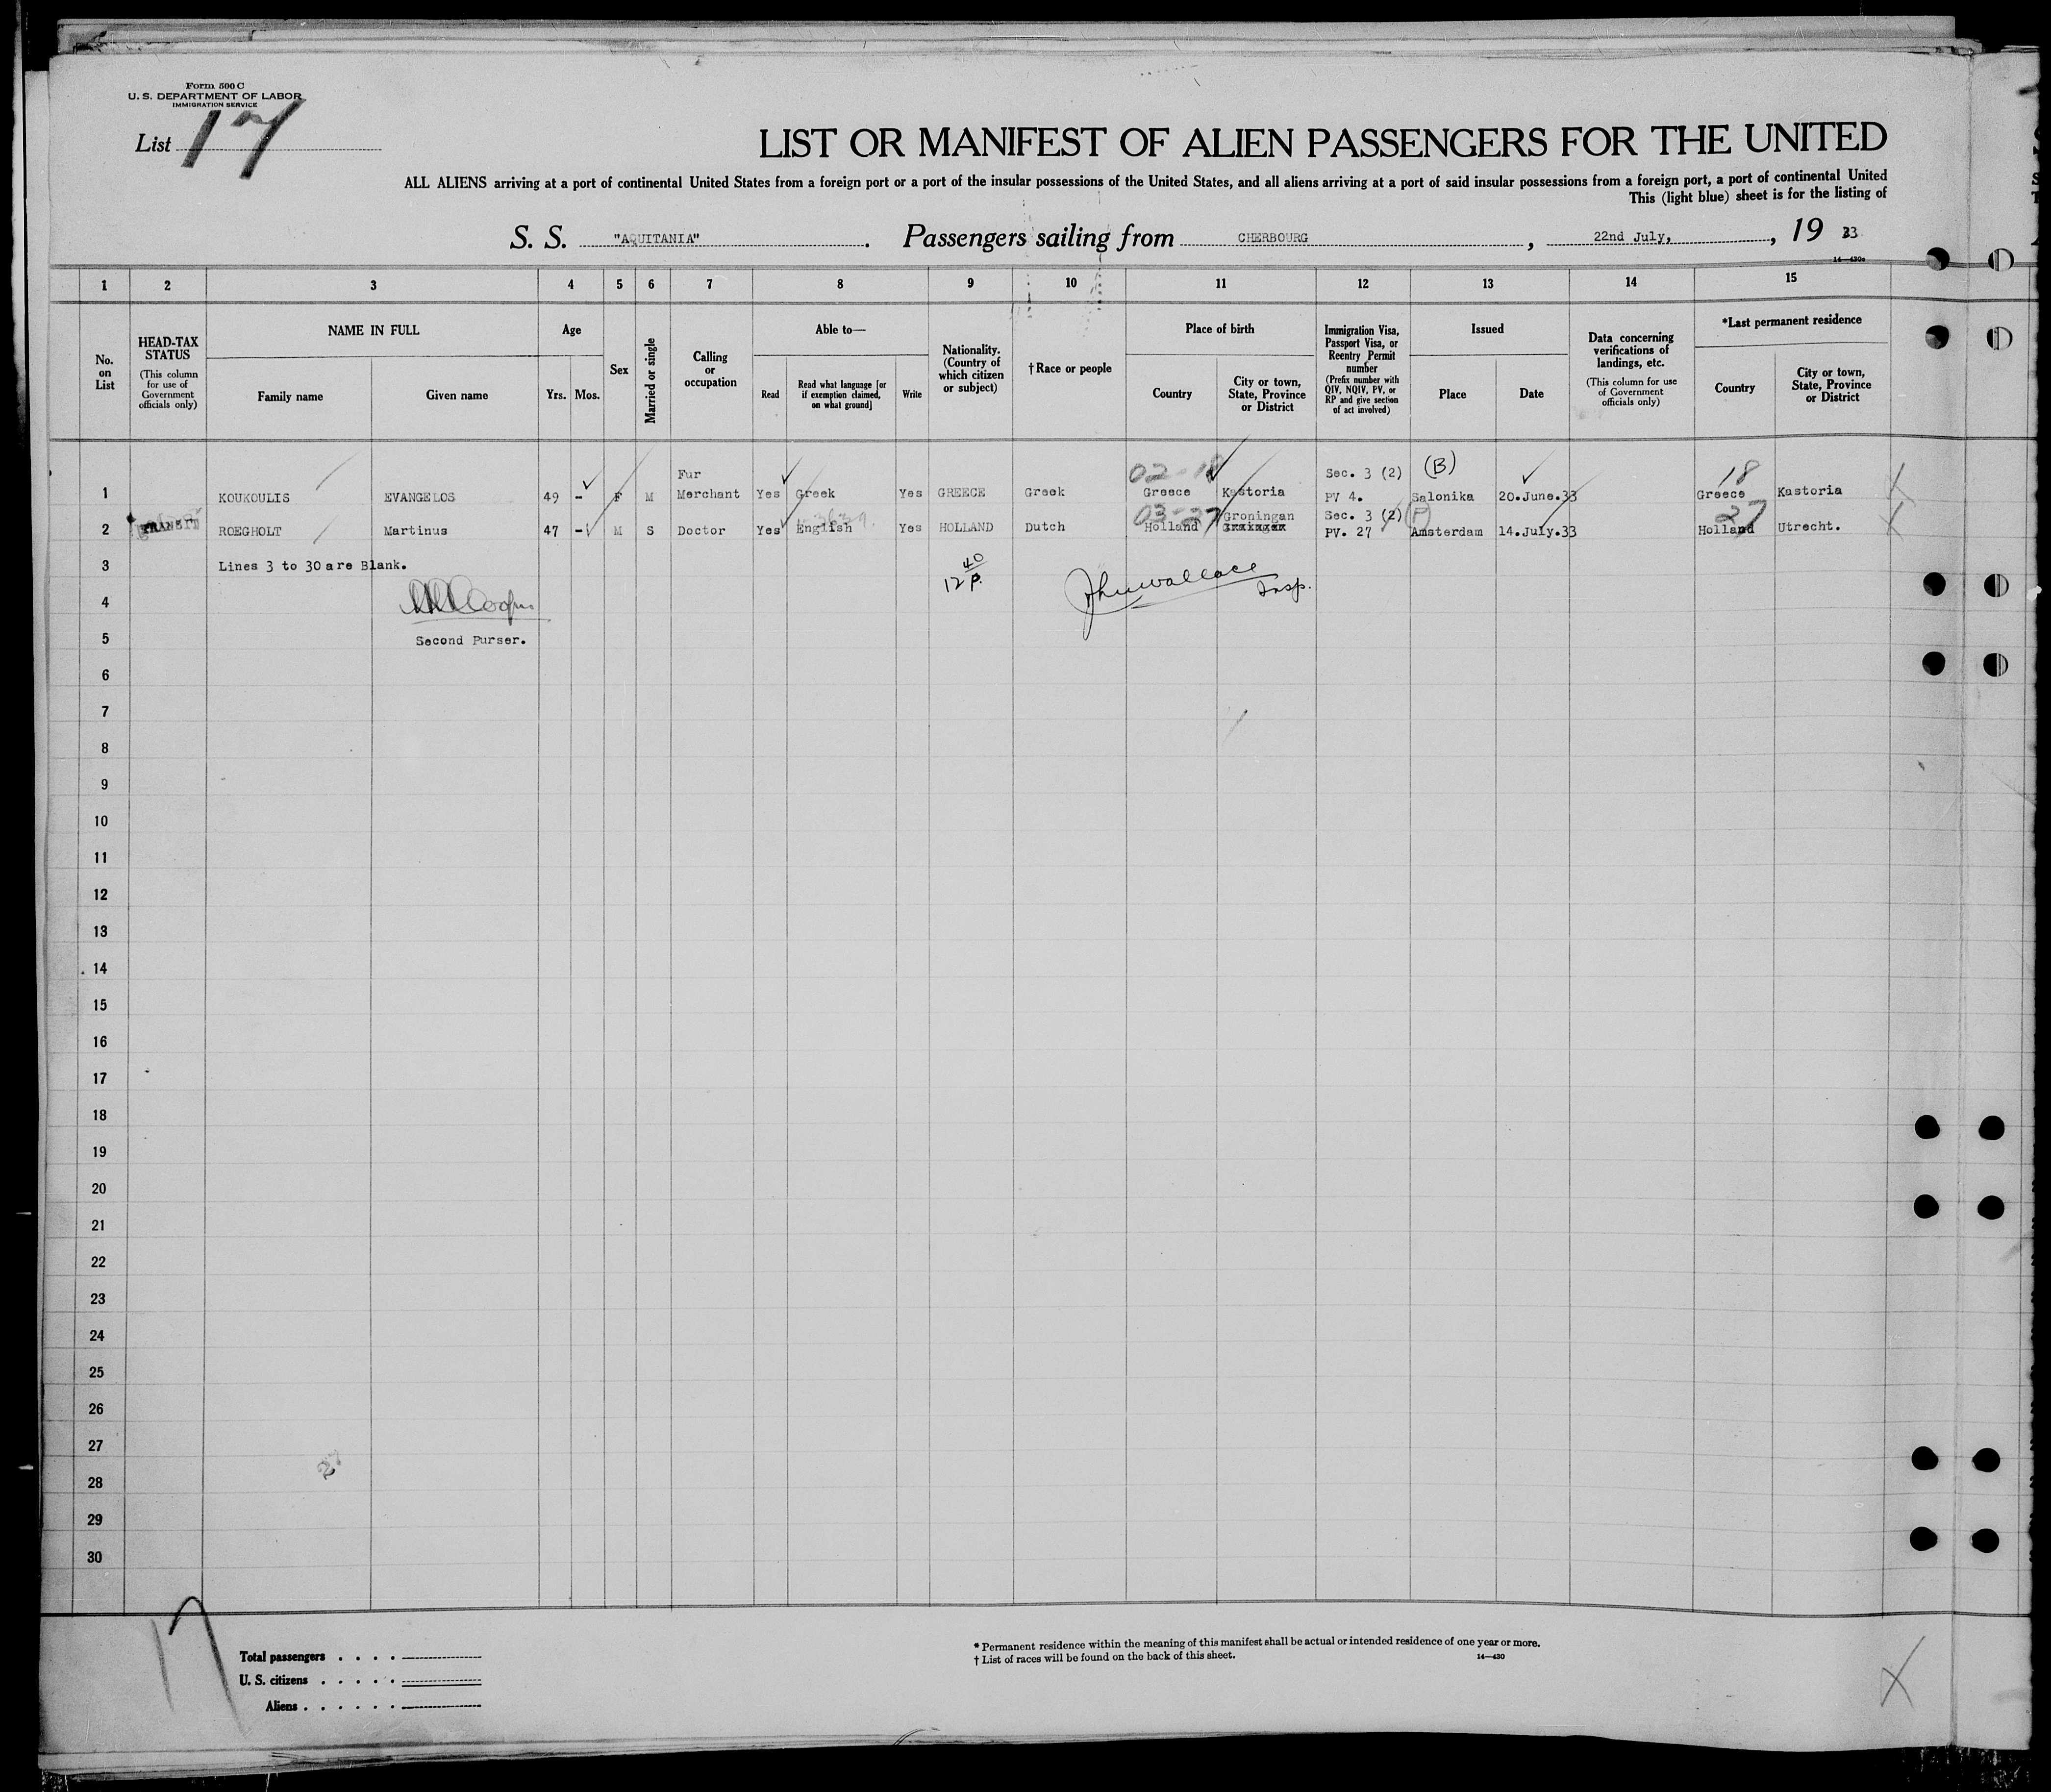 Form 500 C
U. S. DEPARTMENT OF LABOR
IMMIGRATION SERVICE
List 17
LIST OR MANIFEST OF ALIEN PASSENGERS FOR THE UNITED
ALL ALIENS arriving at a port of continental United States from a foreign port or a port of the insular possessions of the United States, and all aliens arriving at a port of said insular possessions from a foreign port, a port of continental United
This (light blue) sheet is for the listing of
S. S. "AQUITANIA". Passengers sailing from CHERBOURG, 22nd July, 1933
14—430a
1 2 3 4 5 6 7 8 9 10 11 12 13 14 15
No. on List
HEAD-TAX STATUS
(This column for use of Government officials only)
NAME IN FULL
Family name Given name
Age
Yrs. Mos.
Sex
Married or single
Calling or occupation
Able to—
Read
Read what language [or if exemption claimed, on what ground]
Write
Nationality. (Country of which citizen or subject)
†Race or people
Place of birth
Country
City or town, State, Province or District
Immigration Visa, Passport Visa, or Reentry Permit number
(Prefix number with QIV, NQIV, PV, or RP and give section of act involved)
Issued
Place Date
Data concerning verifications of landings, etc.
(This column for use of Government officials only)
*Last permanent residence
Country
City or town, State, Province or District
Fur 02-18 Sec. 3 (2) (B) 18
1 KOUKOULIS EVANGELOS 49 - F M Merchant Yes Greek Yes GREECE Greek Greece Kastoria PV 4. Salonika 20.June.33 Greece Kastoria
03-27 Groningan Sec. 3 (2) (P) 27
2 TRANSIT ROEGHOLT Martinus 47 - M S Doctor Yes English Yes HOLLAND Dutch Holland PV. 27 Amsterdam 14.July.33 Holland Utrecht.
3 Lines 3 to 30 are Blank.
12 40 p.
Jhnwallace Insp.
4
5 Second Purser.
6
7
8
9
10
11
12
13
14
15
16
17
18
19
20
21
22
23
24
25
26
27
28
29
30
27
17
Total passengers . . . .
U. S. citizens . . . . .
Aliens . . . . . .
* Permanent residence within the meaning of this manifest shall be actual or intended residence of one year or more.
† List of races will be found on the back of this sheet.
14—430
X